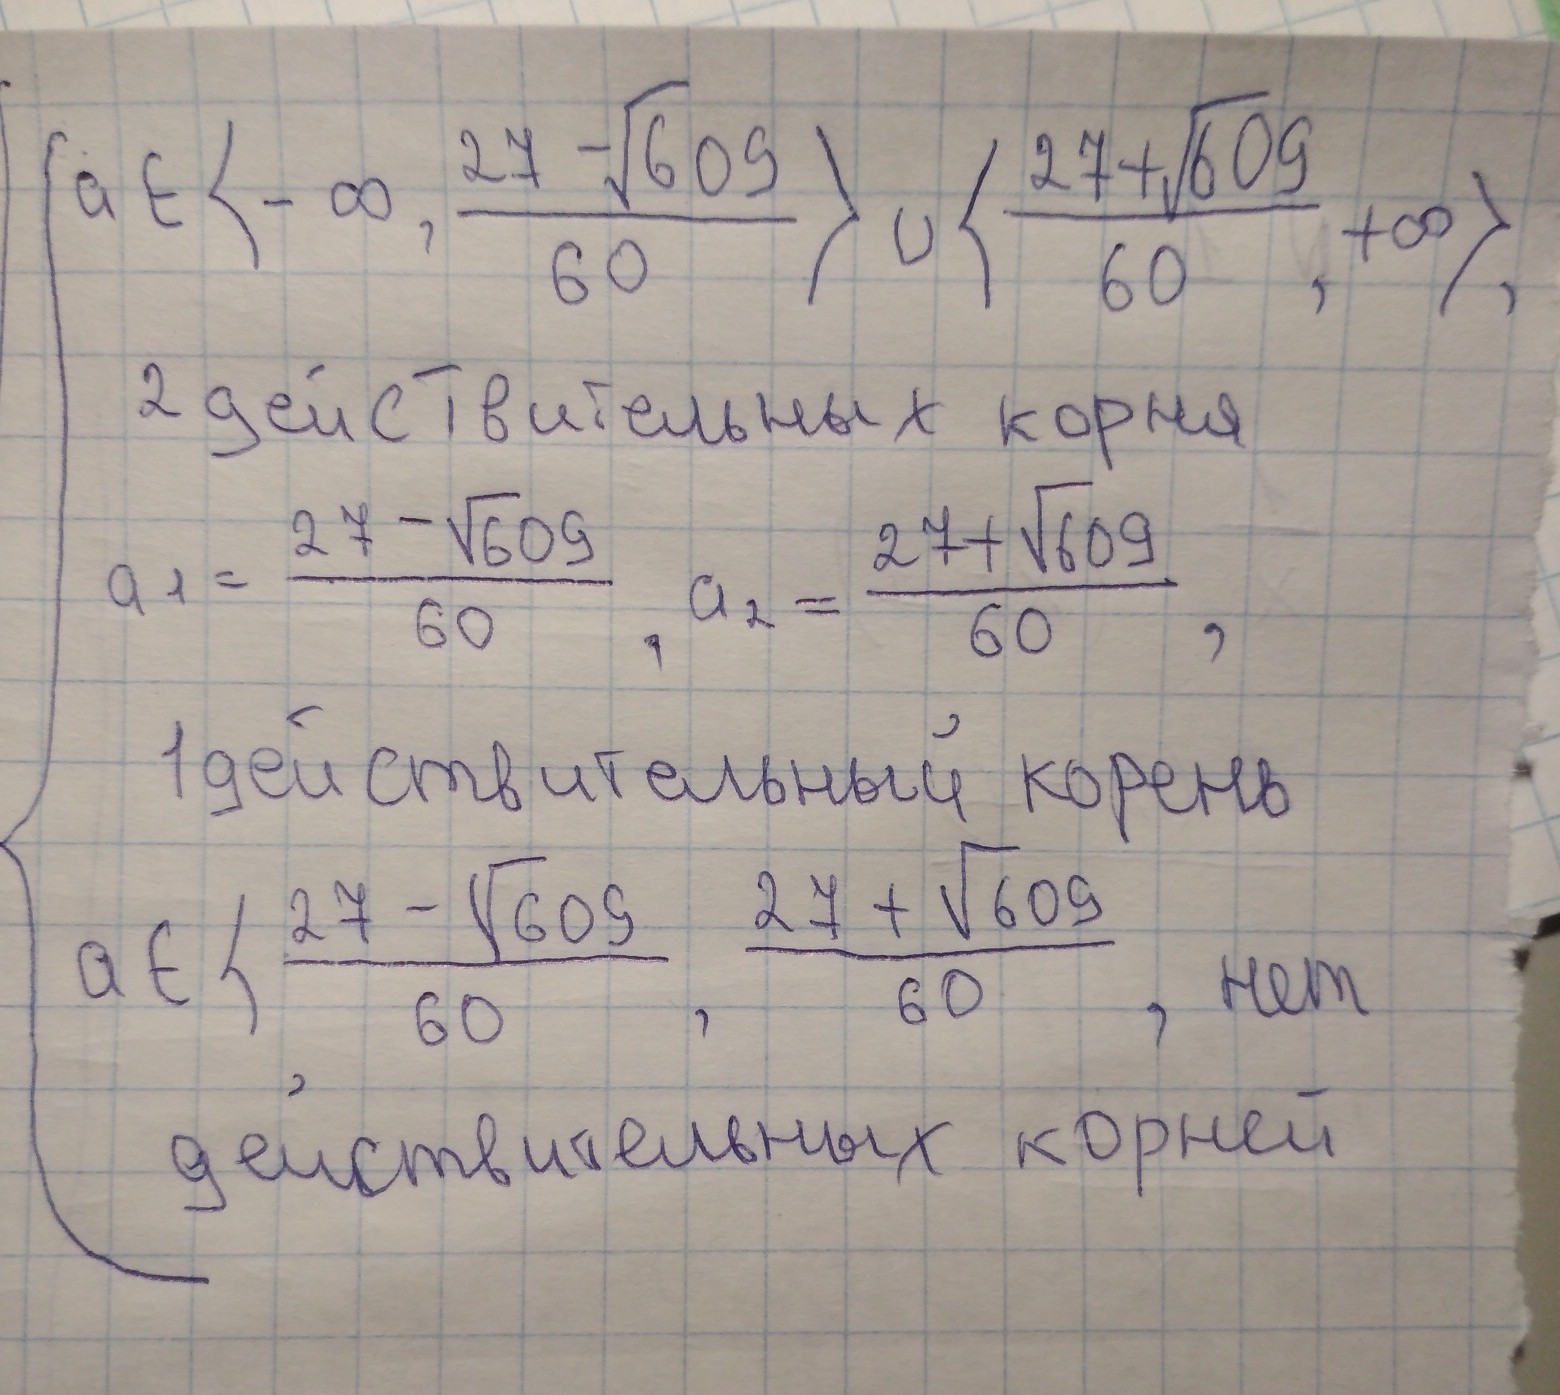 a ∈ ⟨-∞, (27-√609)/60⟩ ∪ ⟨(27+√609)/60, +∞⟩,
2 действительных корня
a1 = (27-√609)/60, a2 = (27+√609)/60,
1 действительный корень
a ∈ ⟨(27-√609)/60, (27+√609)/60, нет
действительных корней